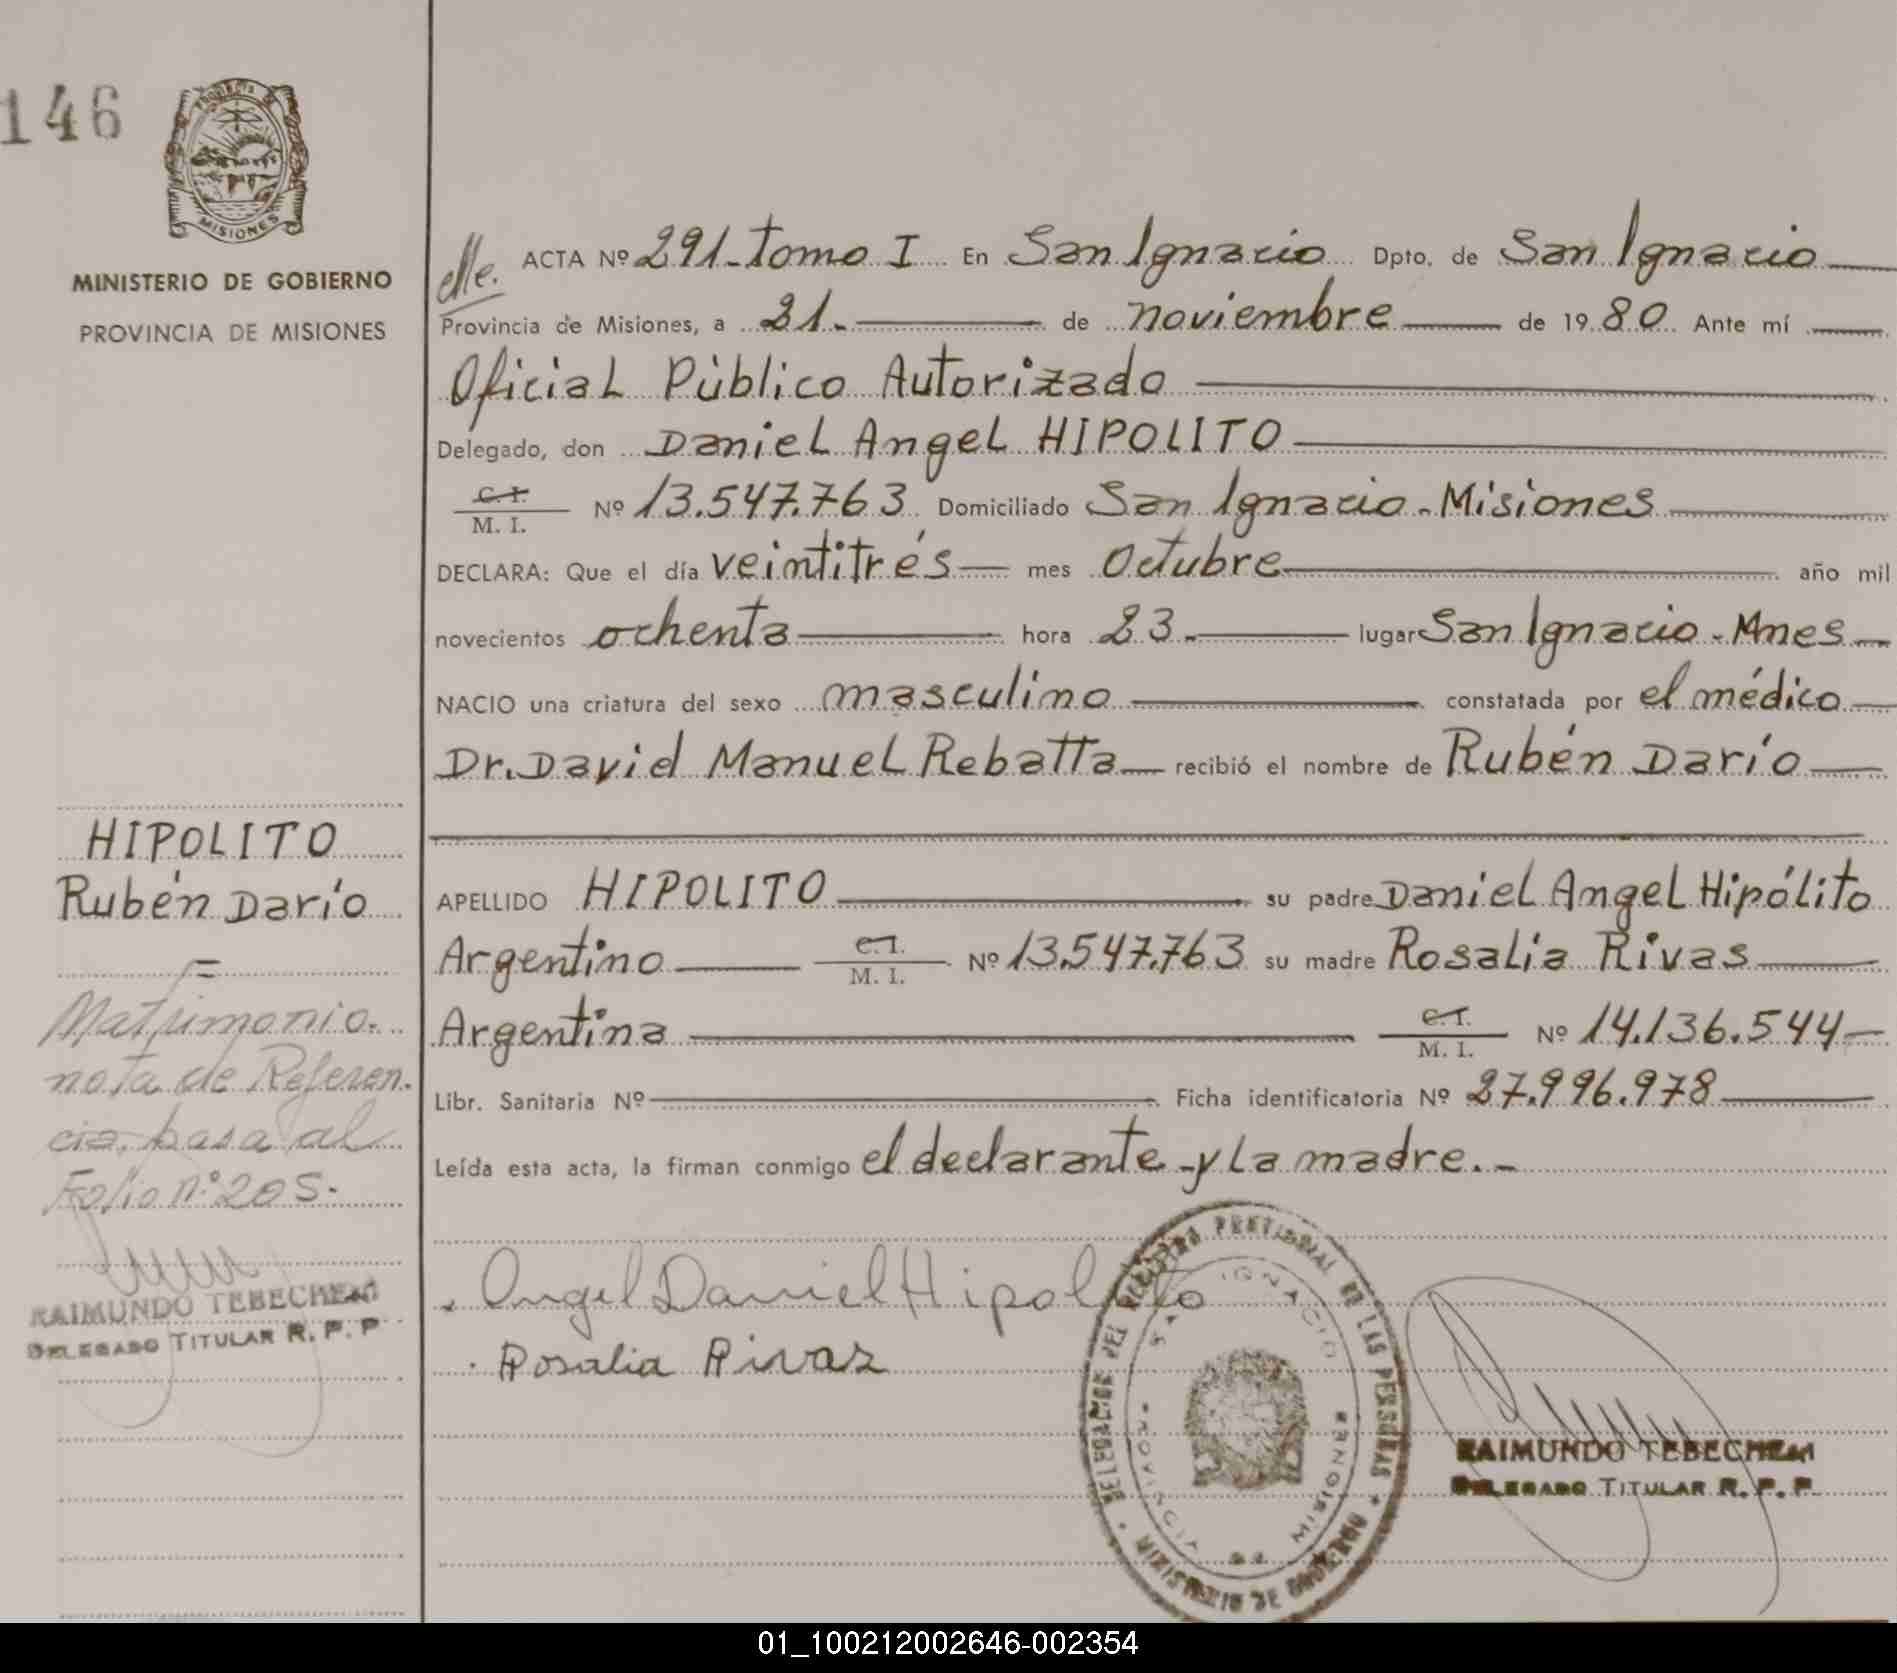 146
PROVINCIA DE
MISIONES
MINISTERIO DE GOBIERNO
PROVINCIA DE MISIONES
HIPOLITO
Rubén Darío
Matrimonio.
nota de Referen.
cia, pasa al
Folio n.º 205.
RAIMUNDO TEBECHEM
DELEGADO TITULAR R. P. P
ACTA Nº 291-tomo I En San Ignacio Dpto. de San Ignacio
Provincia de Misiones, a 21.- de noviembre de 1980 Ante mí
Oficial Público Autorizado
Delegado, don Daniel Angel HIPOLITO
C. I.
M. I. Nº 13.547.763 Domiciliado San Ignacio - Misiones
DECLARA: Que el día veintitrés mes Octubre año mil
novecientos ochenta hora 23.- lugar San Ignacio - Mnes
NACIO una criatura del sexo masculino constatada por el médico
Dr. David Manuel Rebatta recibió el nombre de Rubén Darío
APELLIDO HIPOLITO su padre Daniel Angel Hipólito
Argentino C. I.
M. I. Nº 13.547.763 su madre Rosalia Rivas
Argentina C. I.
M. I. Nº 14.136.544
Libr. Sanitaria Nº Ficha identificatoria Nº 27.996.978
Leída esta acta, la firman conmigo el declarante - y la madre. -
Angel Daniel Hipolito
Rosalia Rivaz
DELEGACION DEL REGISTRO PROVINCIAL DE LAS PERSONAS
SAN IGNACIO
PROVINCIA DE MISIONES
RAIMUNDO TEBECHEM
DELEGADO TITULAR R. P. P.
01_100212002646-002354